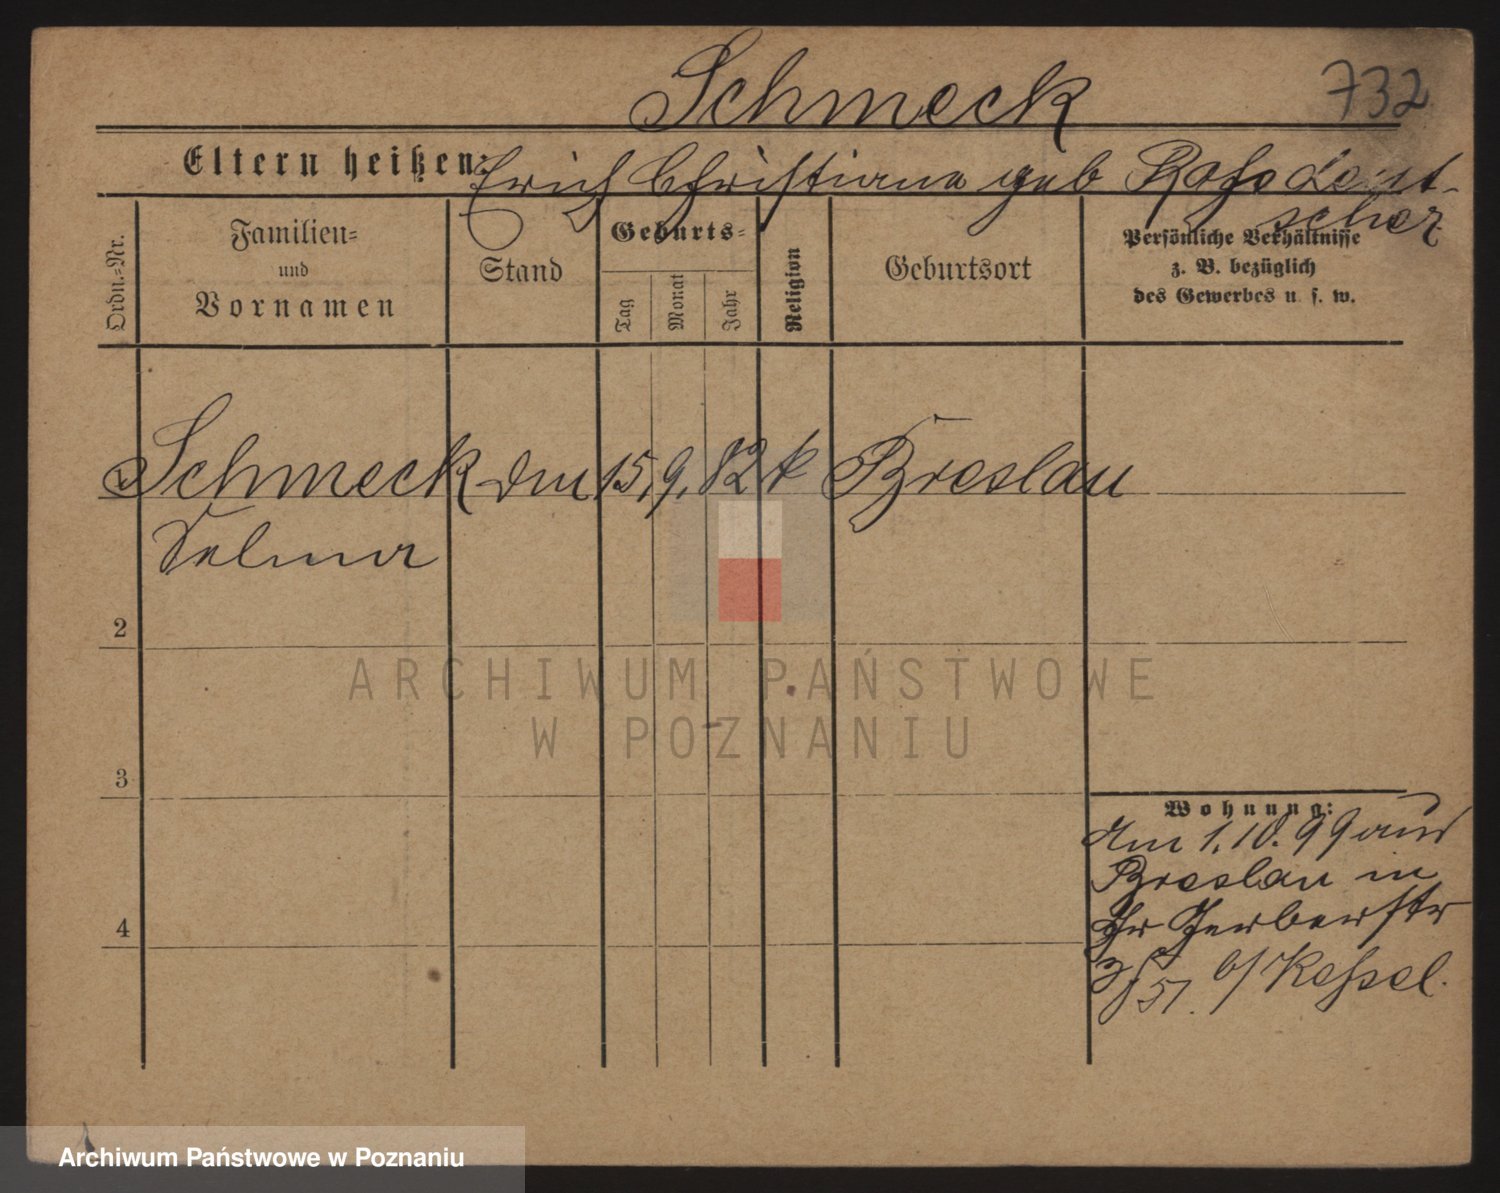 Schmeck
732
Eltern heißen: Erich Christiane geb
scher
Ordn.-Nr.
Familien-
und
Vornamen
Stand
Geburts-
Tag
Monat
Jahr
Religion
Geburtsort
Persönliche Verhältnisse
z. B. bezüglich
des Gewerbes u. s. w.
Schmeck 15. 9. 82 k Breslau
Selma
2
3
4
Wohnung:
Am 1.10.99 aus
Breslau in
Gerberstr
51. b/ Kessel.
ARCHIWUM PAŃSTWOWE
W POZNANIU
Archiwum Państwowe w Poznaniu